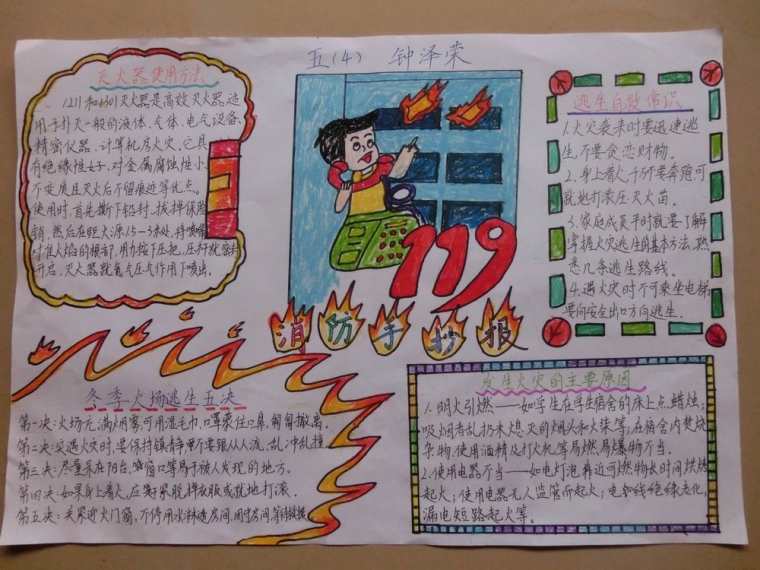 五(4) 钟泽荣
灭火器使用方法
1211和1301灭火器是高效灭火器.适
用于扑灭一般的液体、气体、电气设备、
精密仪器、计算机房火灾。它具
有绝缘性好、对金属腐蚀性小、
不变质且灭火后不留痕迹等优点。
使用时,首先撕下铅封,拔掉保险
销,然后在距火源1.5-3米处,将喷嘴
对准火焰的根部,用力按下压把,压杆就
开启,灭火器就氮气压力作用下喷出。
119
消防手抄报
逃生自救常识
1.火灾袭来时要迅速逃
生,不要贪恋财物。
2.身上着火,千万不要奔跑,可
就地打滚压灭火苗。
3.家庭成员平时就要了解
掌握火灾逃生的基本方法,熟
悉几条逃生路线。
4.遇火灾时不可乘坐电梯,
要向安全出口方向逃生。
冬季火场逃生五决
第一决:火场充满烟雾,可用湿毛巾、口罩蒙住口鼻,匍匐撤离。
第二决:突遇火灾时,要保持镇静,不要跟从人流,乱冲乱撞。
第三决:尽量呆在阳台、窗口等易于被人发现的地方。
第四决:如果身上着火,应赶紧脱掉衣服或就地打滚。
第五决:关紧迎火门窗,不停用水淋透房间,固守房间,等待救援。
发生火灾的主要原因
1.明火引燃——如学生在学生宿舍的床上点蜡烛;
吸烟者乱扔未熄灭的烟头和火柴等;在宿舍内焚烧
杂物,使用酒精及打火机等易燃、易爆物不当.
2.使用电器不当——如电灯泡靠近可燃物长时间烘烤
起火;使用电器无人监管而起火;电线绝缘老化,
漏电短路起火等。